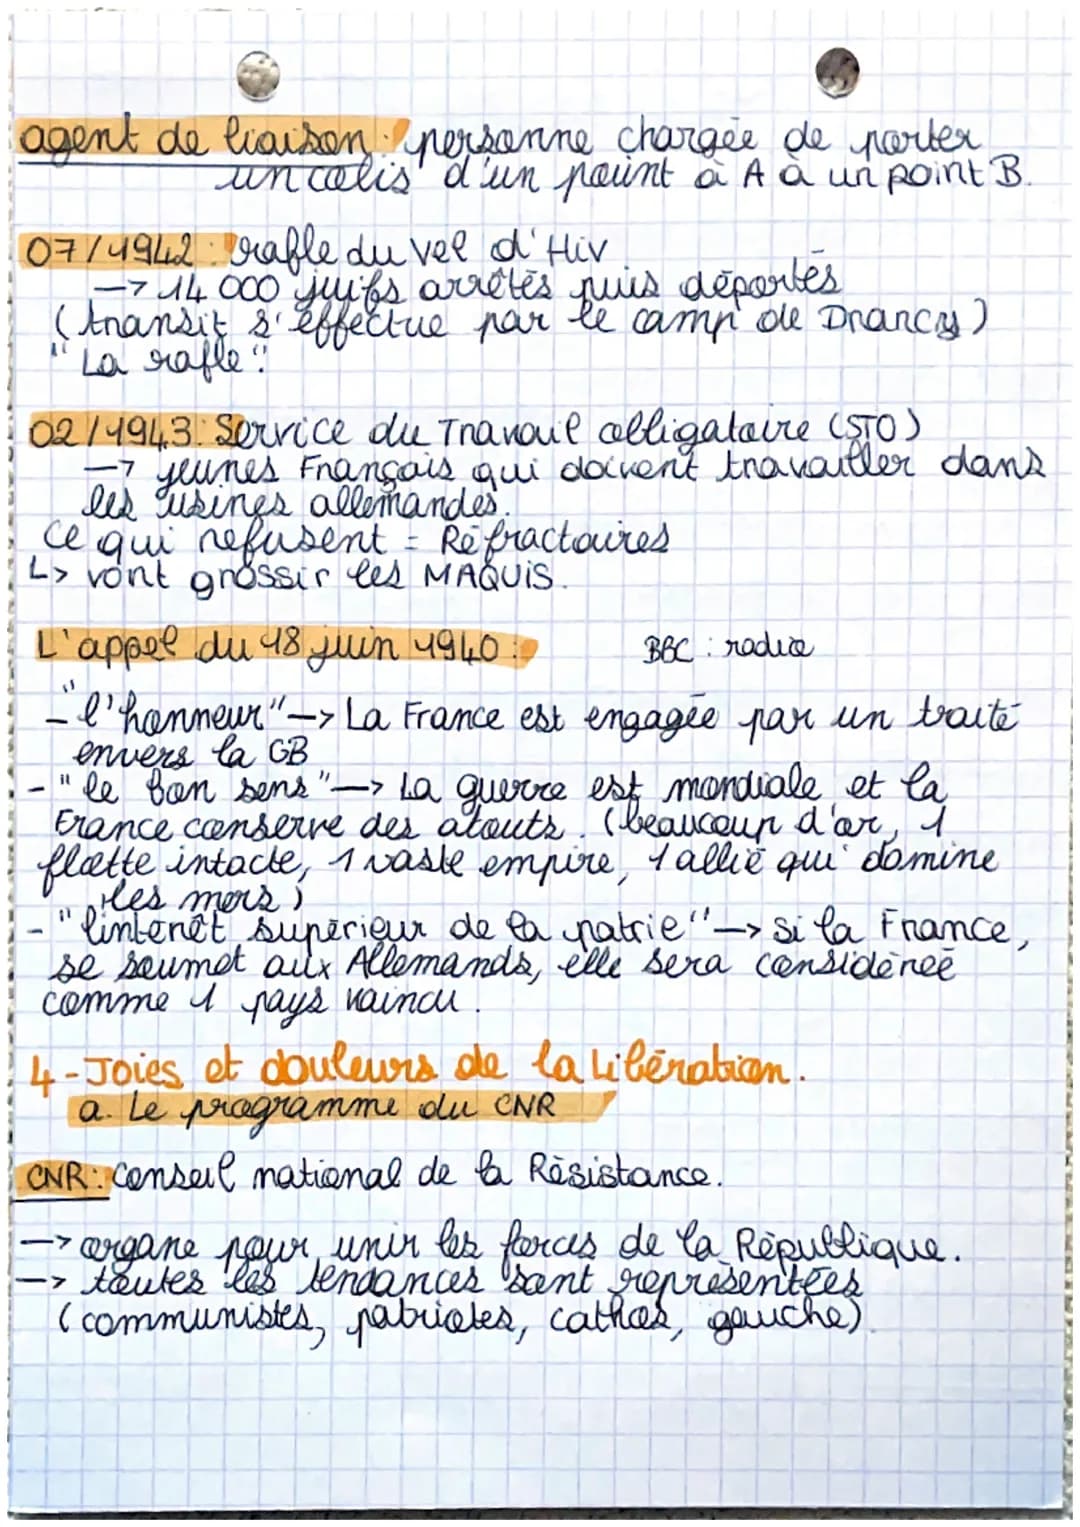 agent de liaison : personne chargée de porter
un colis d'un point à A à un point B.
07/1942 : rafle du vel d'Hiv
→ 14 000 juifs arrêtés puis déportés
(transit s'effectue par le camp de Drancy)
"La rafle".
02/1943 : Service du Travail obligatoire (STO)
→ jeunes Français qui doivent travailler dans
les usines allemandes.
Ce qui refusent = Réfractaires
↳ vont grossir les MAQUIS.
L'appel du 18 juin 1940 : BBC : radio
- "l'honneur" → La France est engagée par un traité
envers la GB
- "le bon sens" → La guerre est mondiale et la
France conserve des atouts. (beaucoup d'or, 1
flotte intacte, 1 vaste empire, 1 allié qui domine
les mers)
- "l'interêt supérieur de la patrie" → Si la France,
se soumet aux Allemands, elle sera considérée
comme 1 pays vaincu.
4 - Joies et douleurs de la Libération.
a. Le programme du CNR
CNR : Conseil national de la Résistance.
→ organe pour unir les forces de la République.
→ toutes les tendances sont représentées
(communistes, patriotes, cathos, gauche).